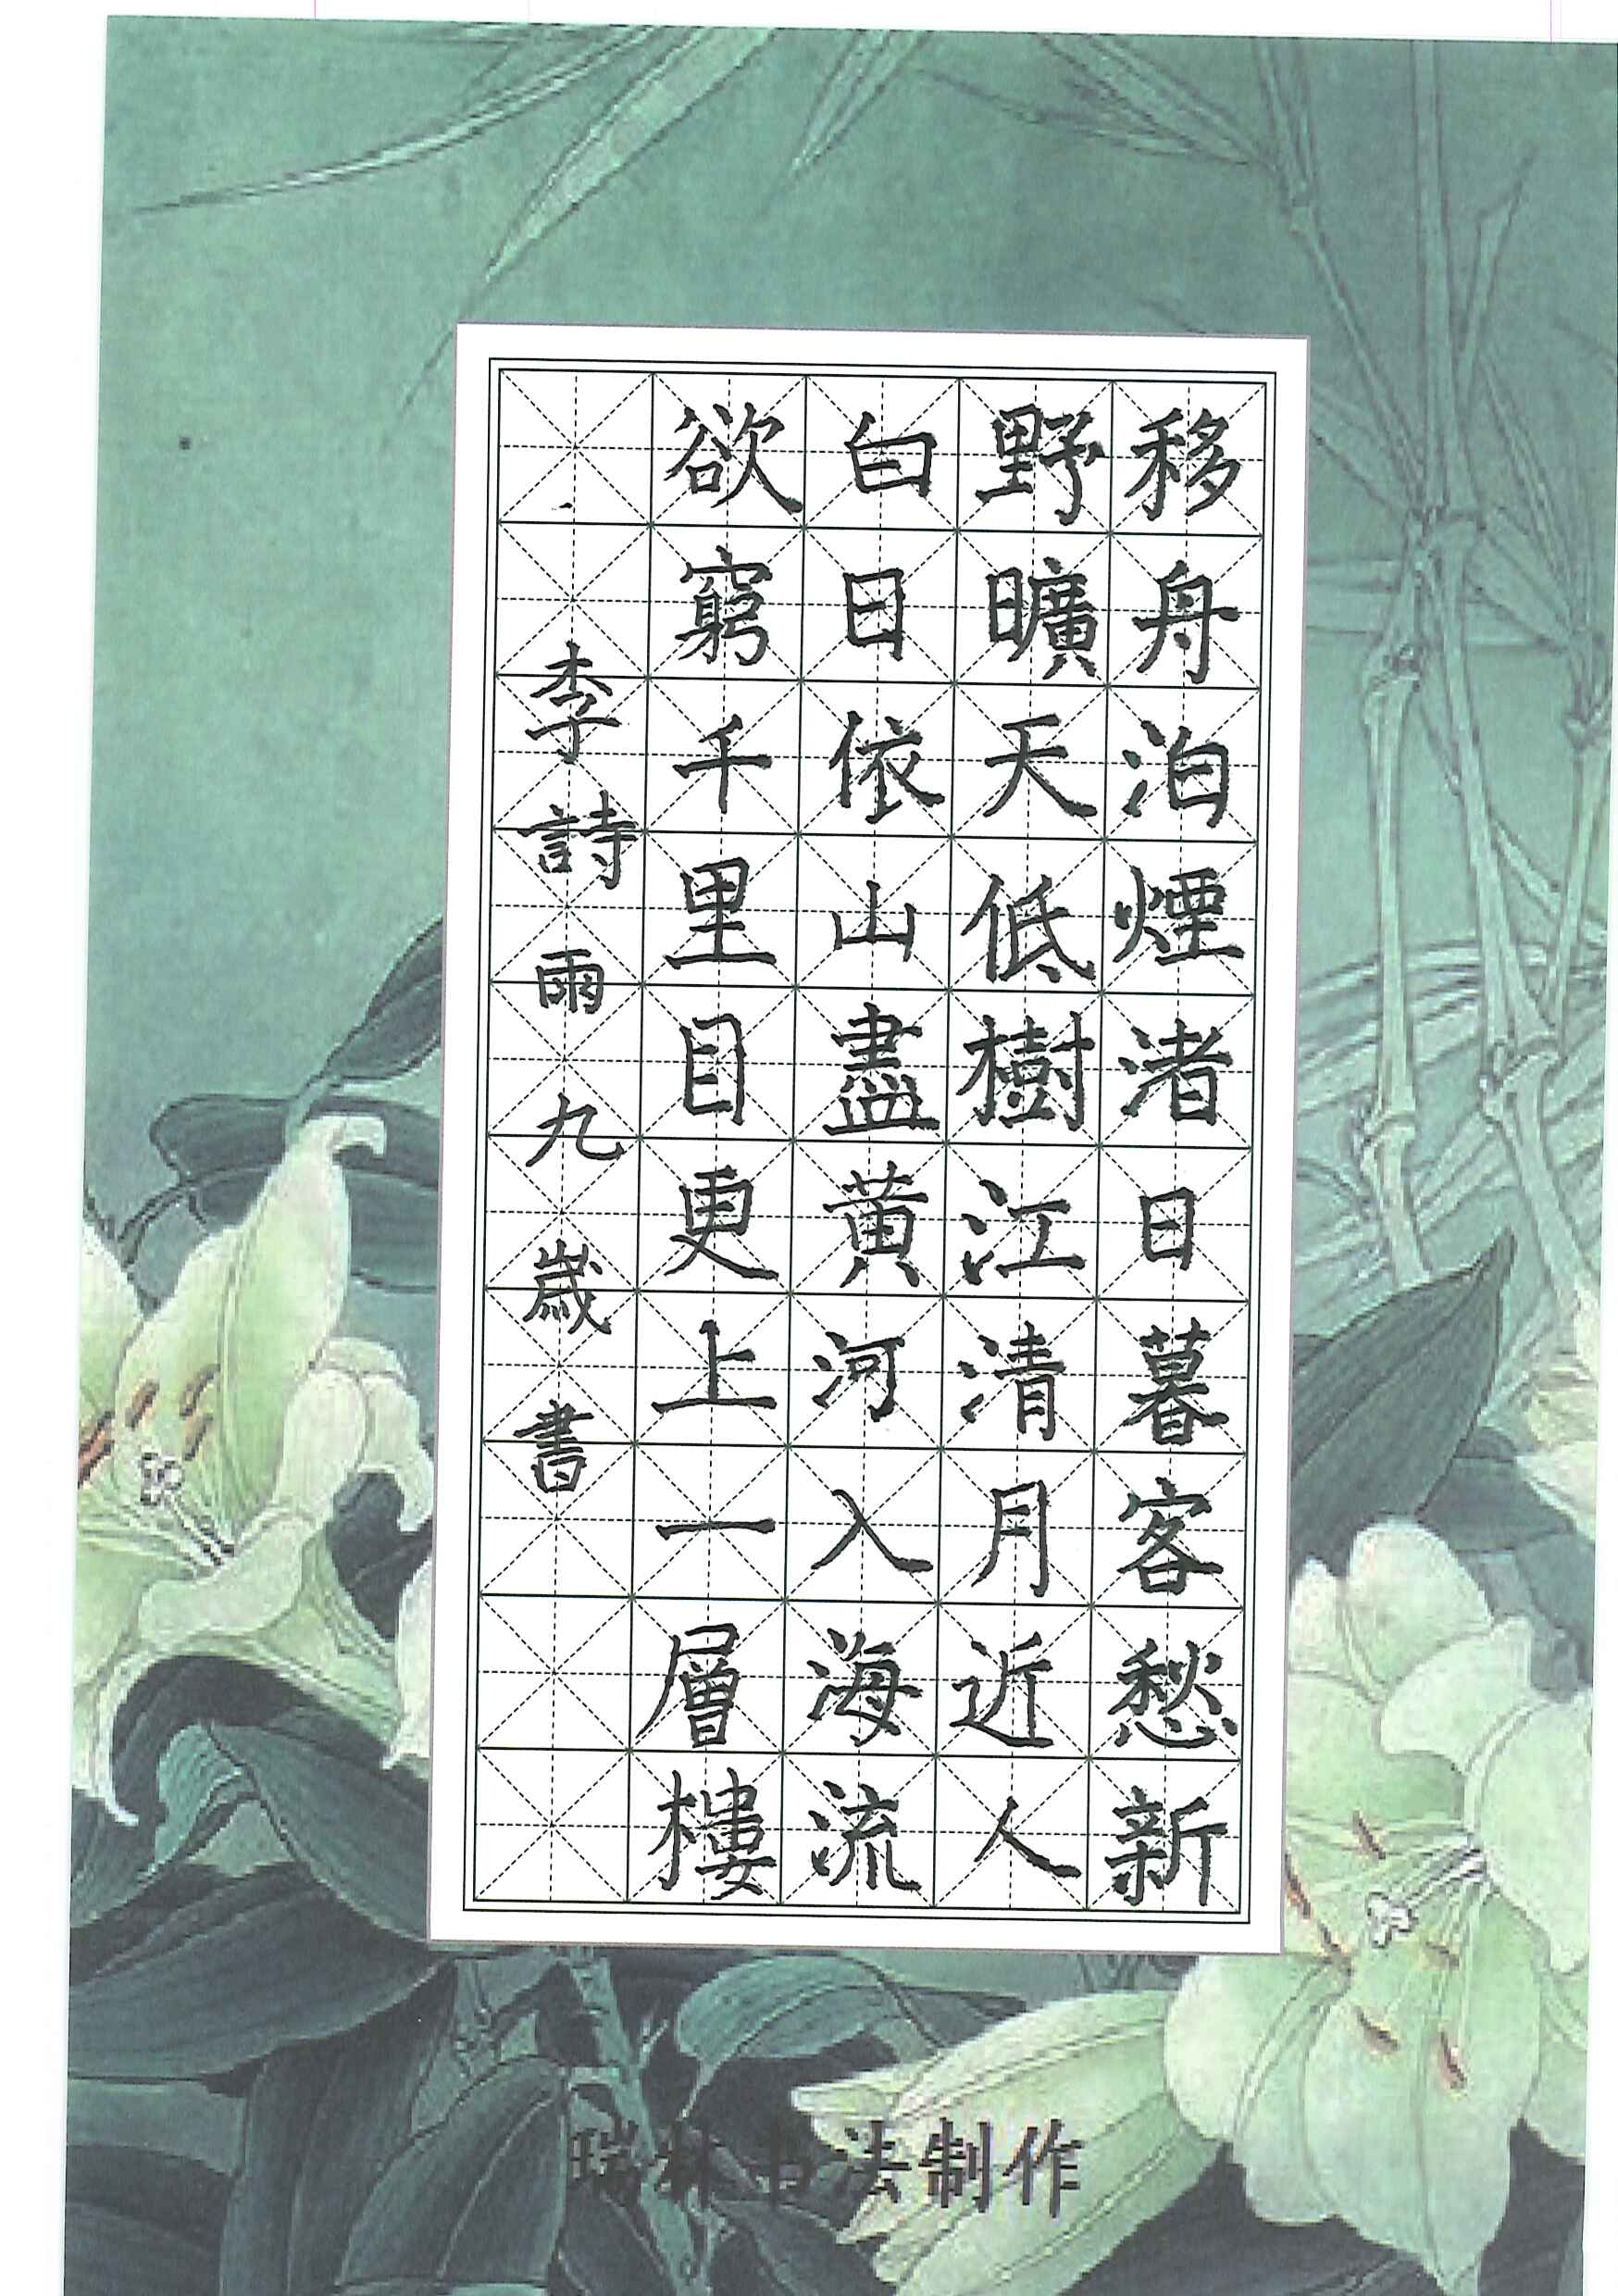 移舟泊煙渚日暮客愁新
野曠天低樹江清月近人
白日依山盡黃河入海流
欲窮千里目更上一層樓
李詩雨九歲書
瑞林书法制作